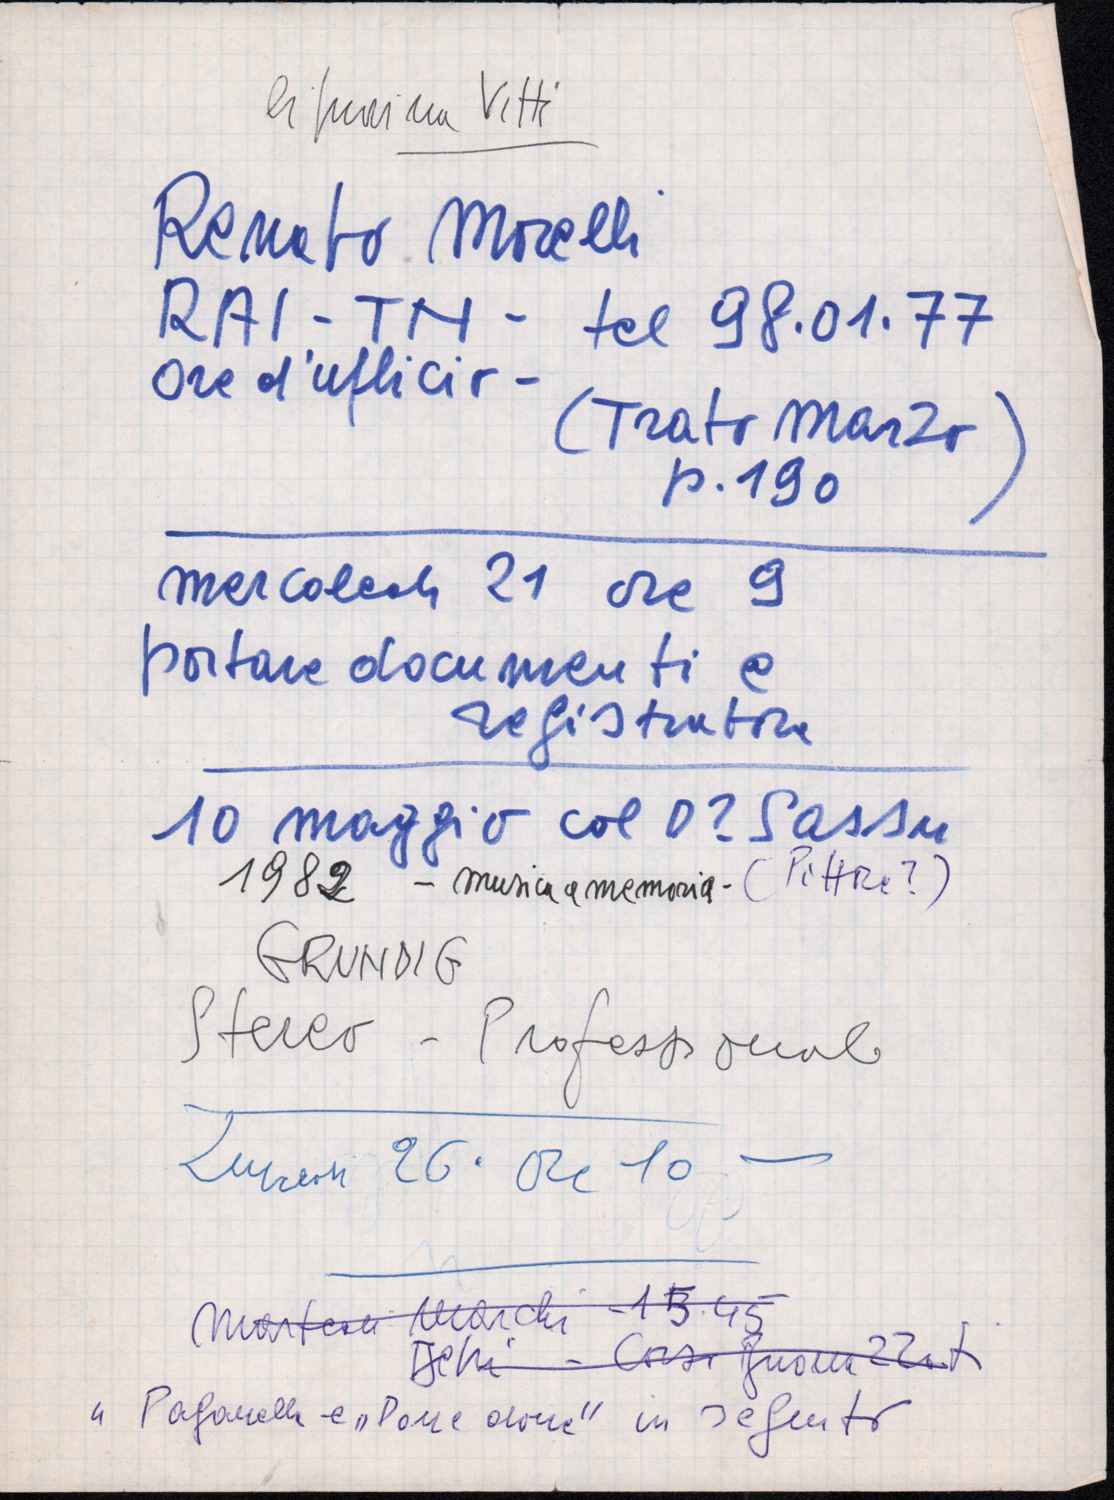 Vitti
Renato Morelli
RAI - TN - tel 98.01.77
ore d'ufficio -
(Trato Marzo
p. 190)
mercoledì 21 ore 9
portare documenti e
registratore
10 maggio col D? Sassu
1982 - musica e memoria - (Pittore?)
GRUNDIG
Stereo - Professional
Lunedì 26. Ore 10 —
Martedì Marchi - 15.45
- Corso
" Paganella e „Done done" in seguito